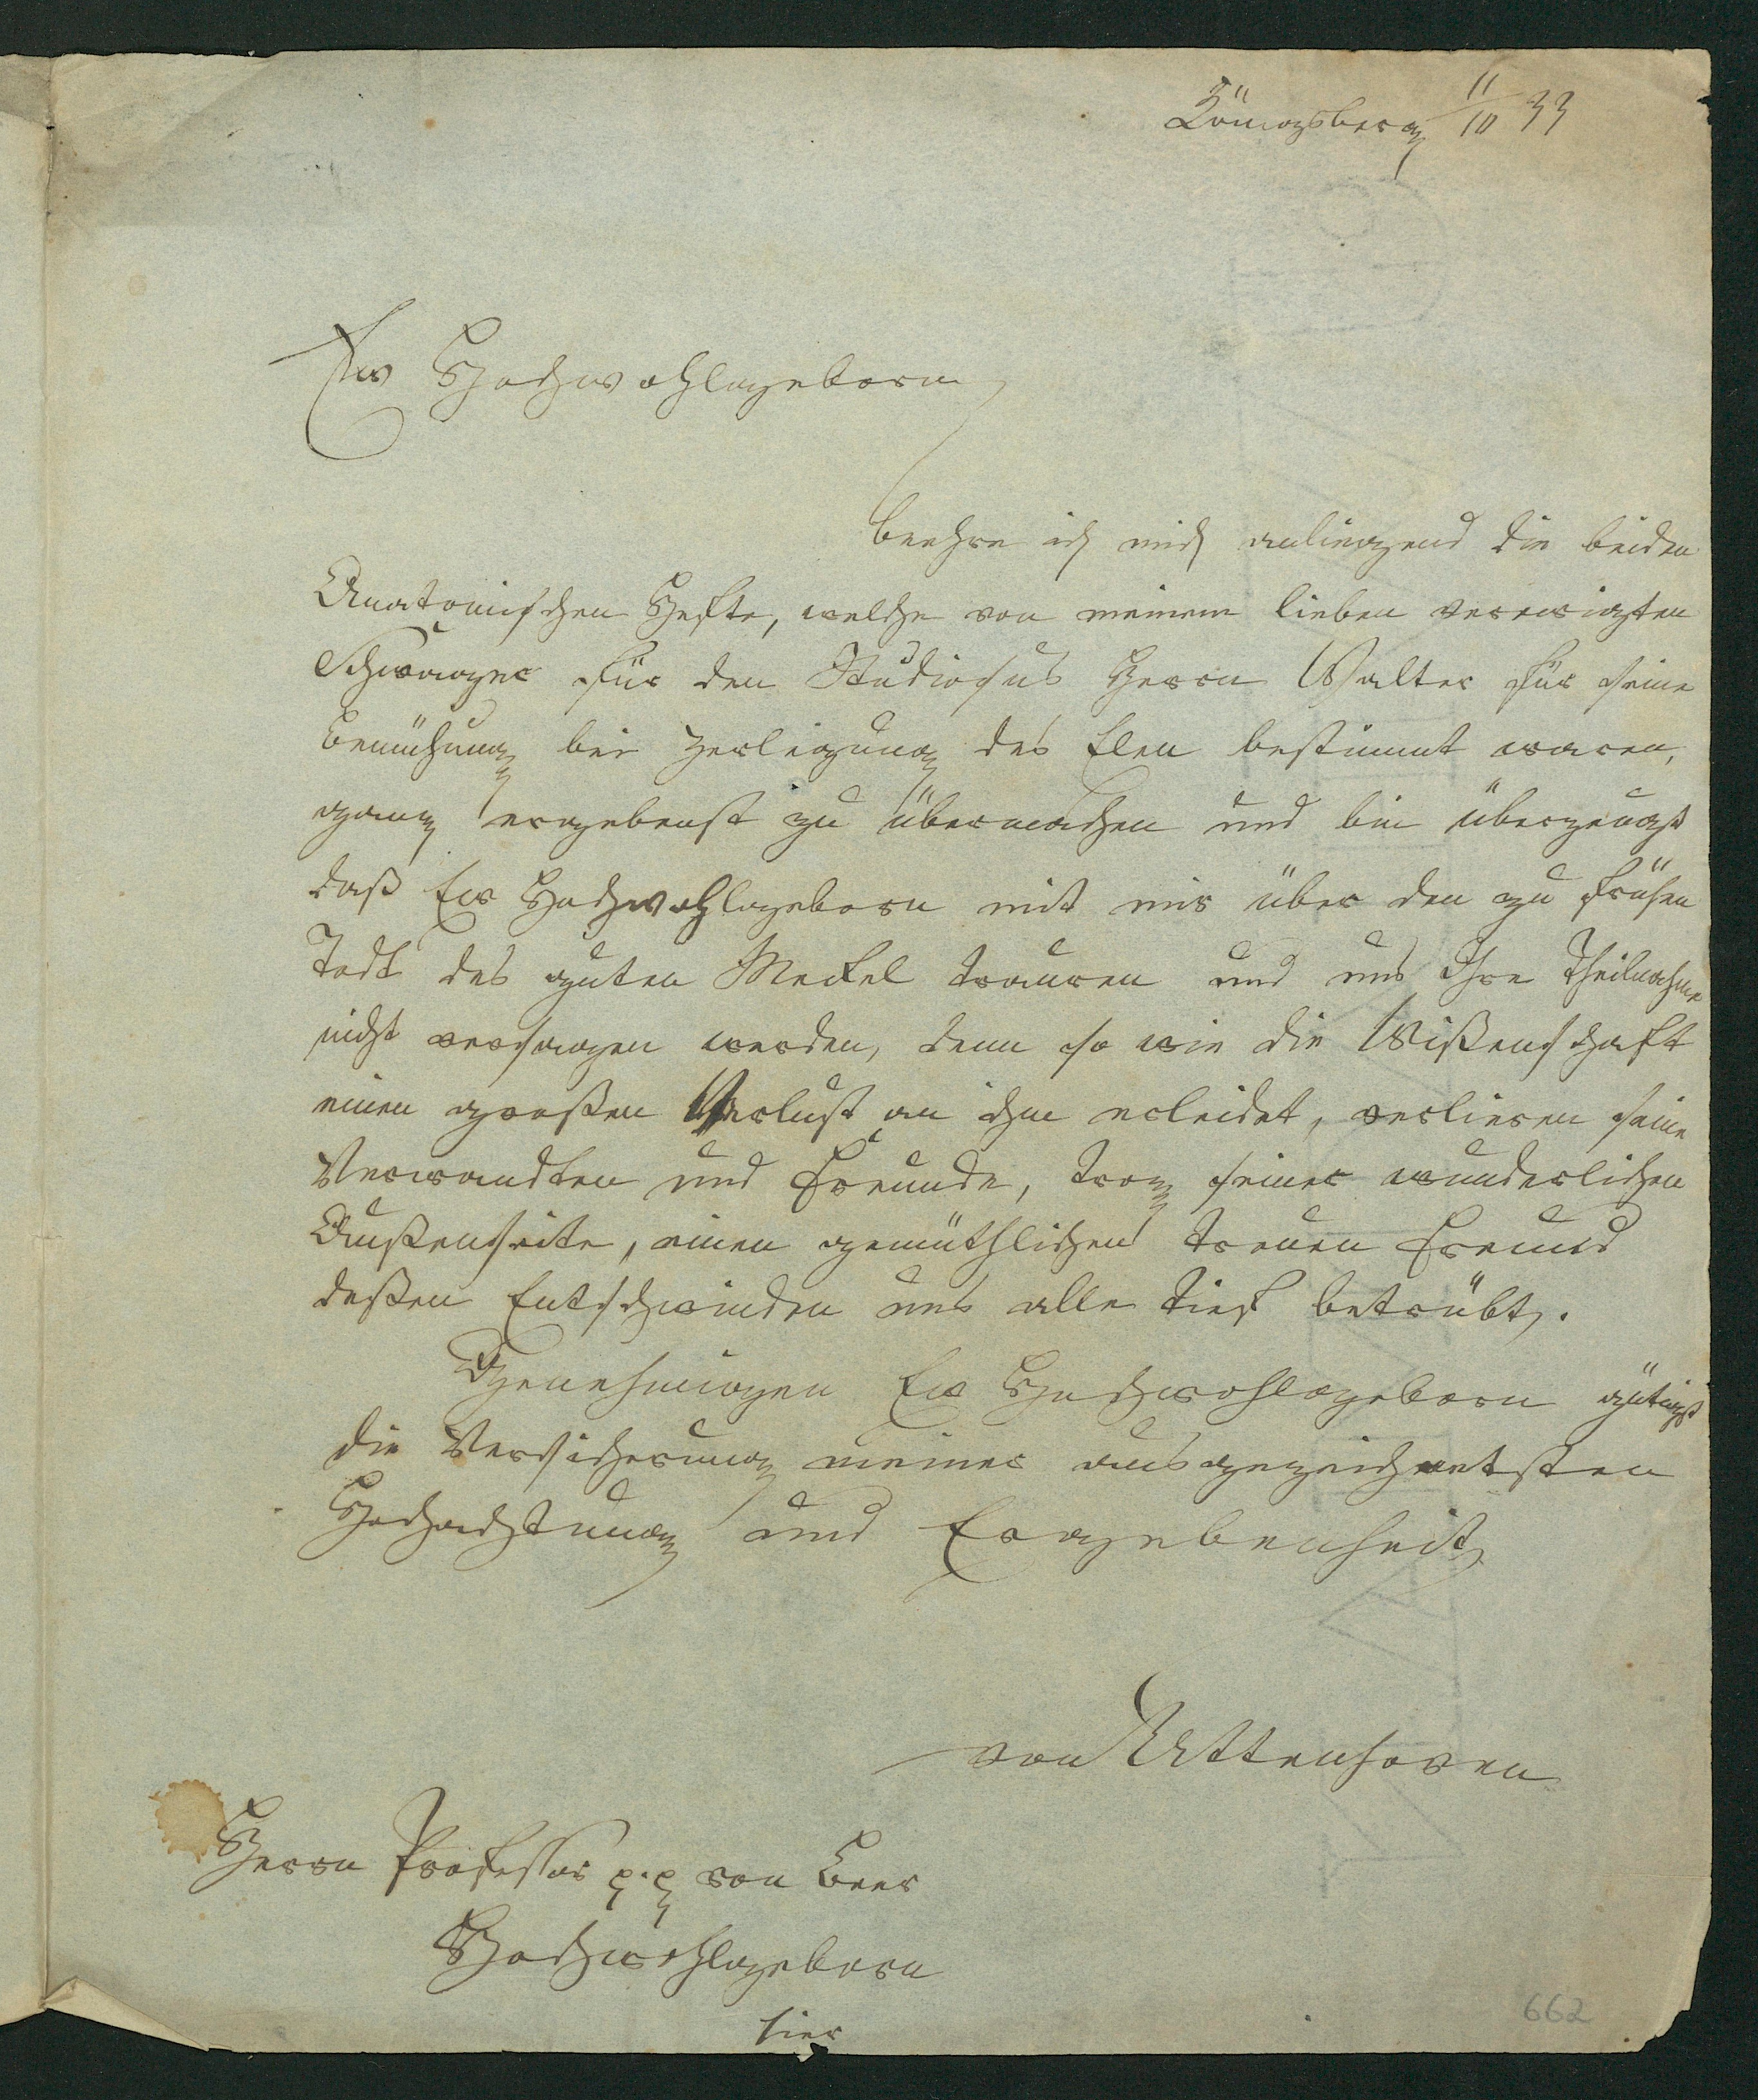 Königsberg 11/10 33
Ew Hochwohlgeborn
beehre ich mich anliegend die beiden
Anatomischen Hefte, welche von meinem lieben verewigten
Schwager für den Studiosus Herrn Walter für seine
Bemühung bei Zerlegung des Elen bestimmt waren,
ganz ergebenst zu übermachen und bin überzeugt
daß Ew Hochwohlgeborn mit mir über den zu frühen
Todt des guten Meckel trauren und uns Ihre Theilnahme
nicht versagen werden, denn so wie die Wißenschaft
einen großen Verlust an ihm erleidet, verlieren seine
Verwandten und Freunde, troz seiner wunderlichen
Außenseite, einen gemüthlichen treuen Freund
deßen Entschwinden uns alle tief betrübt.
Genehmigen Ew Hochwohlgeborn gütigst
die Versicherung meiner ausgezeichnetsten
Hochachtung und Ergebenheit
von Uttenhoven
Herrn Professor p.p von Baer
Hochwohlgeborn
hier
662